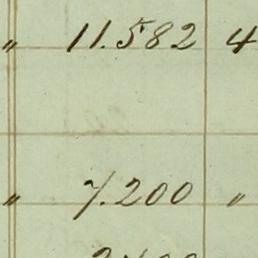 " 11.582 4
" 7.200 "